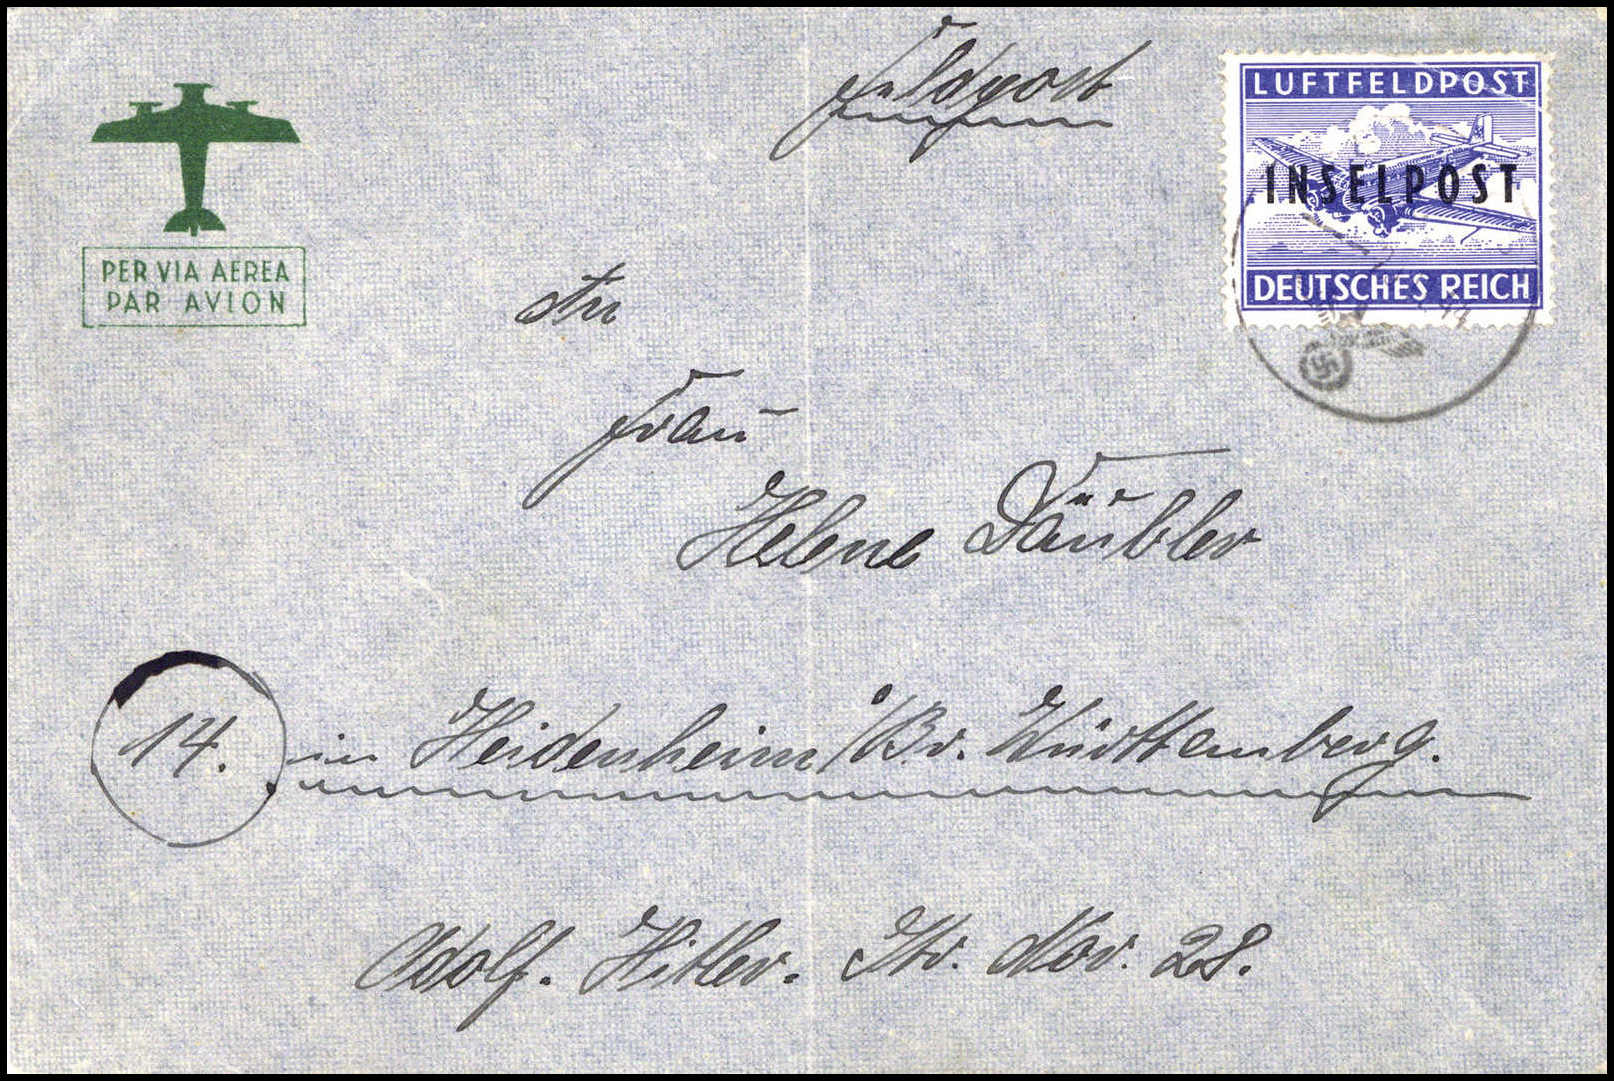 Feldpost
LUFTFELDPOST
INSELPOST
DEUTSCHES REICH
44
PER VIA AEREA
PAR AVION
An
Frau
Helene Däubler
14. in Heidenheim / i/Br. Württemberg.
Adolf. Hitler. Str. Nor. 28.